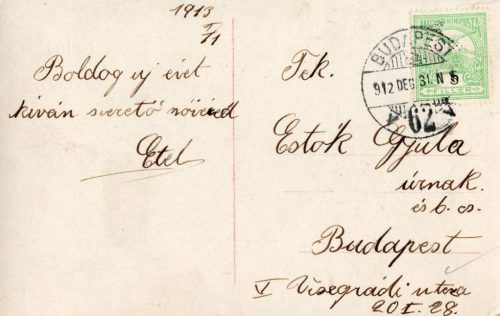 1913
I/1
Boldog uj évet
kiván szerető nővéred
Etel
Tek.
Estók Gyula
úrnak
és b. cs.
Budapest
V Visegrádi utcza
20 I. 28.
MAGYAR KIR. POSTA
FILLÉR
BUDAPEST
912 DEC. 31. N
62